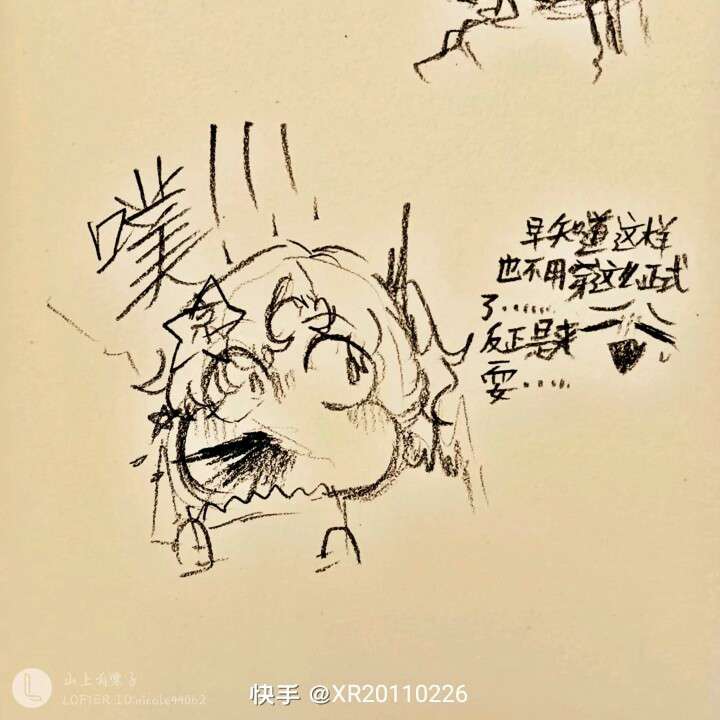 噗
早知道这样
也不用穿这么正式
了......
反正是来
耍.....
山上有栗子
LOFTER ID:nicole99062
快手 @XR20110226